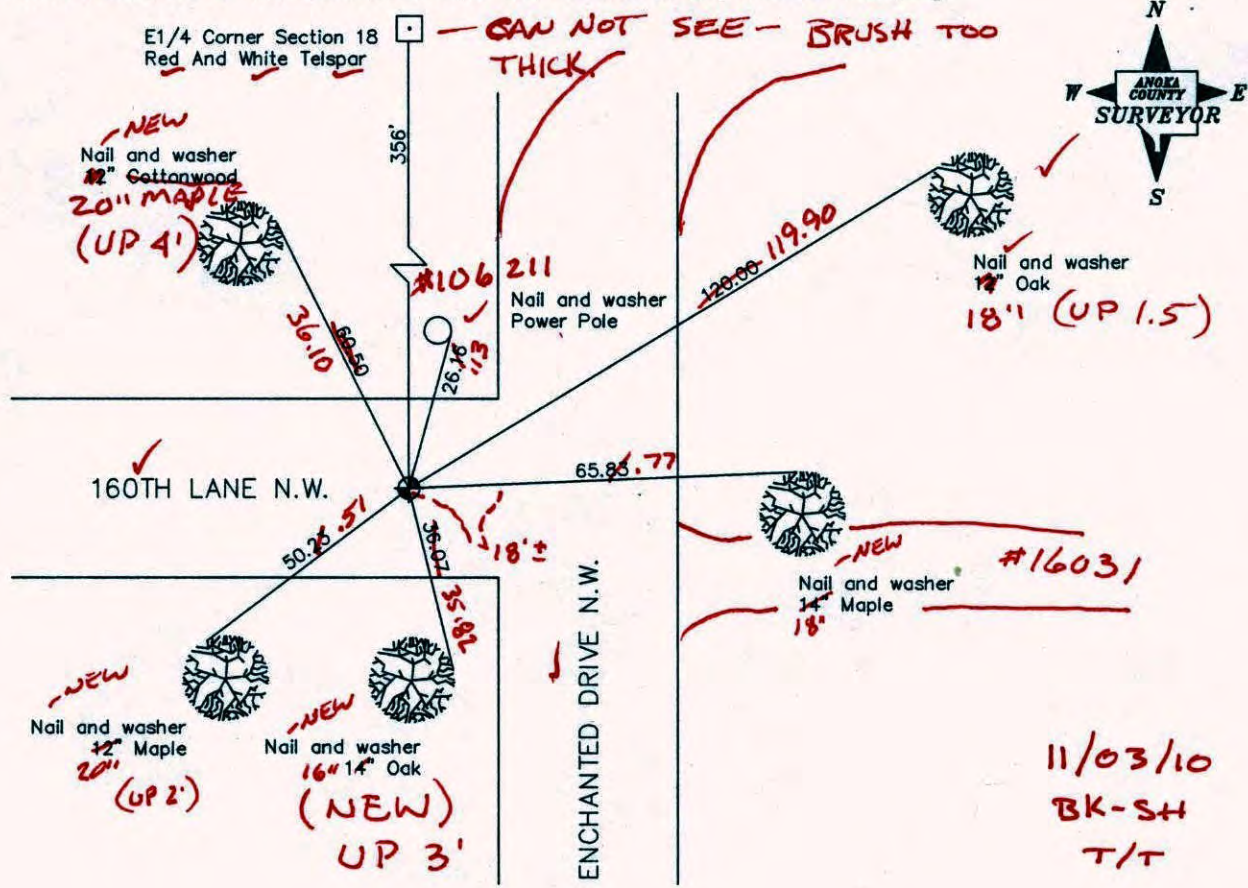 E1/4 Corner Section 18
Red And White Telspar
— CAN NOT SEE — BRUSH TOO
THICK.
N
W
ANOKA
COUNTY
SURVEYOR
E
S
NEW
Nail and washer
12" Cottonwood
20" MAPLE
(UP 4')
356'
#106 211
Nail and washer
Power Pole
26.16
.13
60.50
36.10
120.00
119.90
Nail and washer
12" Oak
18" (UP 1.5)
160TH LANE N.W.
65.83
.77
50.23
.51
36.07
35.82
18'±
NEW
Nail and washer
14" Maple
18"
#16031
ENCHANTED DRIVE N.W.
NEW
Nail and washer
12" Maple
20"
(UP 2')
NEW
Nail and washer
16" 14" Oak
(NEW)
UP 3'
11/03/10
BK-SH
T/T